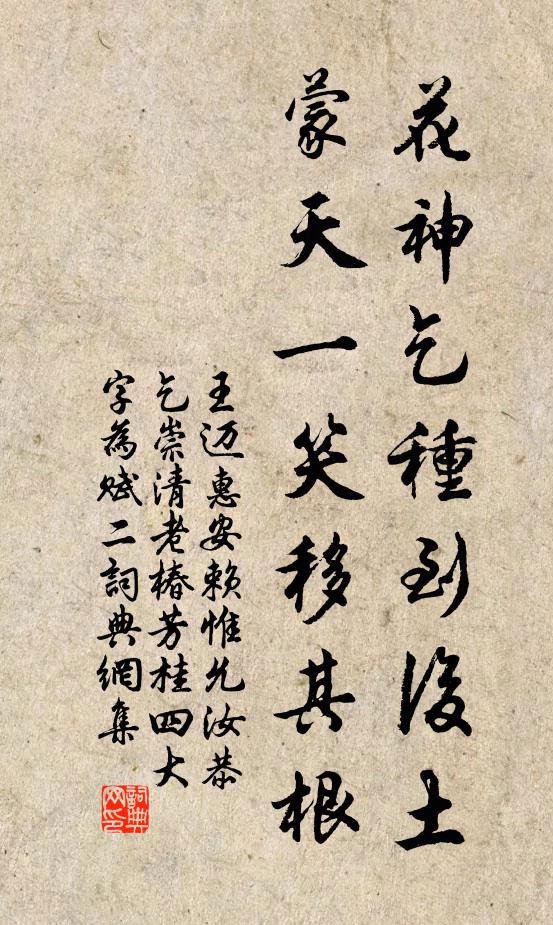 花神乞種到後土
蒙天一笑移其根
王迈惠安赖惟允汝恭
乞崇清老椿芳桂四大
字為赋二詞典網集
詞典网印